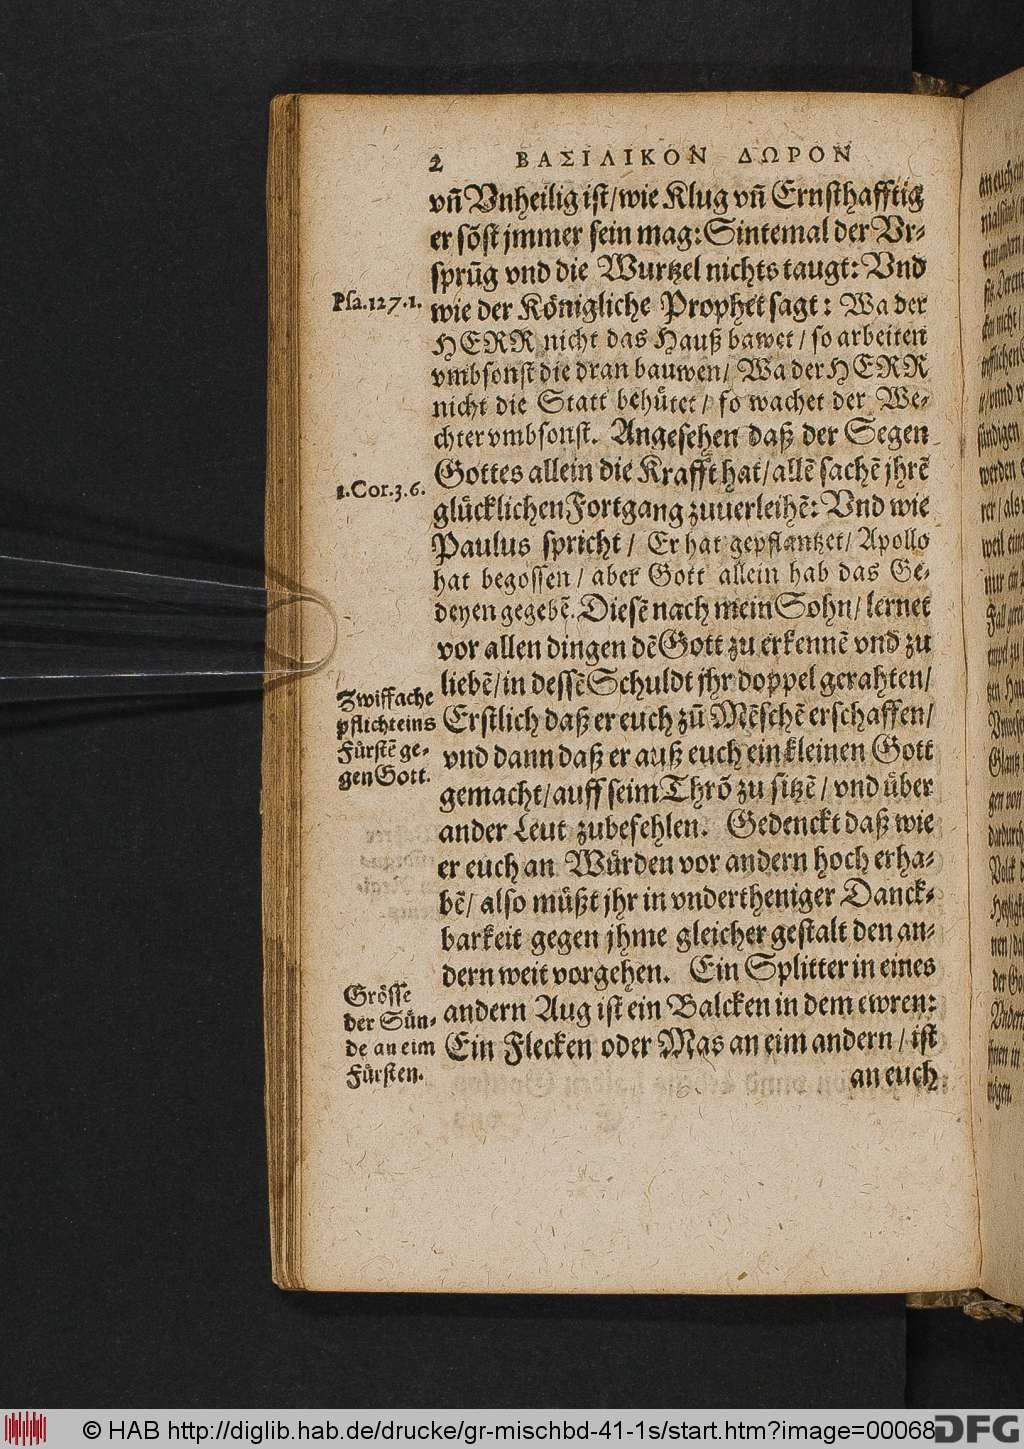 2 ΒΑΣΙΛΙΚΟΝ ΔΩΡΟΝ
vñ Vnheilig ist/wie Klug vñ Ernsthafftig
er sõst jmmer sein mag: Sintemal der Vr-
sprũg vnd die Wurtzel nichts taugt: Vnd
Psa.127.1.
wie der Königliche Prophet sagt: Wa der
HERR nicht das Hauß bawet/ so arbeiten
vmbsonst die dran bauwen/ Wa der HERR
nicht die Statt behütet/ so wachet der We-
chter vmbsonst. Angesehen daß der Segen
1.Cor.3.6.
Gottes allein die Krafft hat/allẽ sachẽ jhrẽ
glücklichen Fortgang zuuerleihẽ: Vnd wie
Paulus spricht/ Er hat gepflantzet/ Apollo
hat begossen/ aber Gott allein hab das Ge-
deyen gegebẽ. Diesẽ nach mein Sohn/ lernet
vor allen dingen dẽ Gott zu erkennẽ vnd zu
liebẽ/in dessẽ Schuldt jhr doppel gerahten/
Zwiffache
pflicht eins
Fürstẽ ge-
gen Gott.
Erstlich daß er euch zũ Mẽschẽ erschaffen/
vnd dann daß er auß euch ein kleinen Gott
gemacht/auff seim Thrõ zu sitzẽ/ vnd über
ander Leut zubefehlen. Gedenckt daß wie
er euch an Würden vor andern hoch erha-
bẽ/ also müßt jhr in vndertheniger Danck-
barkeit gegen jhme gleicher gestalt den an-
dern weit vorgehen. Ein Splitter in eines
Grösse
der Sün-
de an eim
Fürsten.
andern Aug ist ein Balcken in dem ewren:
Ein Flecken oder Mas an eim andern/ ist
an euch
© HAB http://diglib.hab.de/drucke/gr-mischbd-41-1s/start.htm?image=00068
DFG